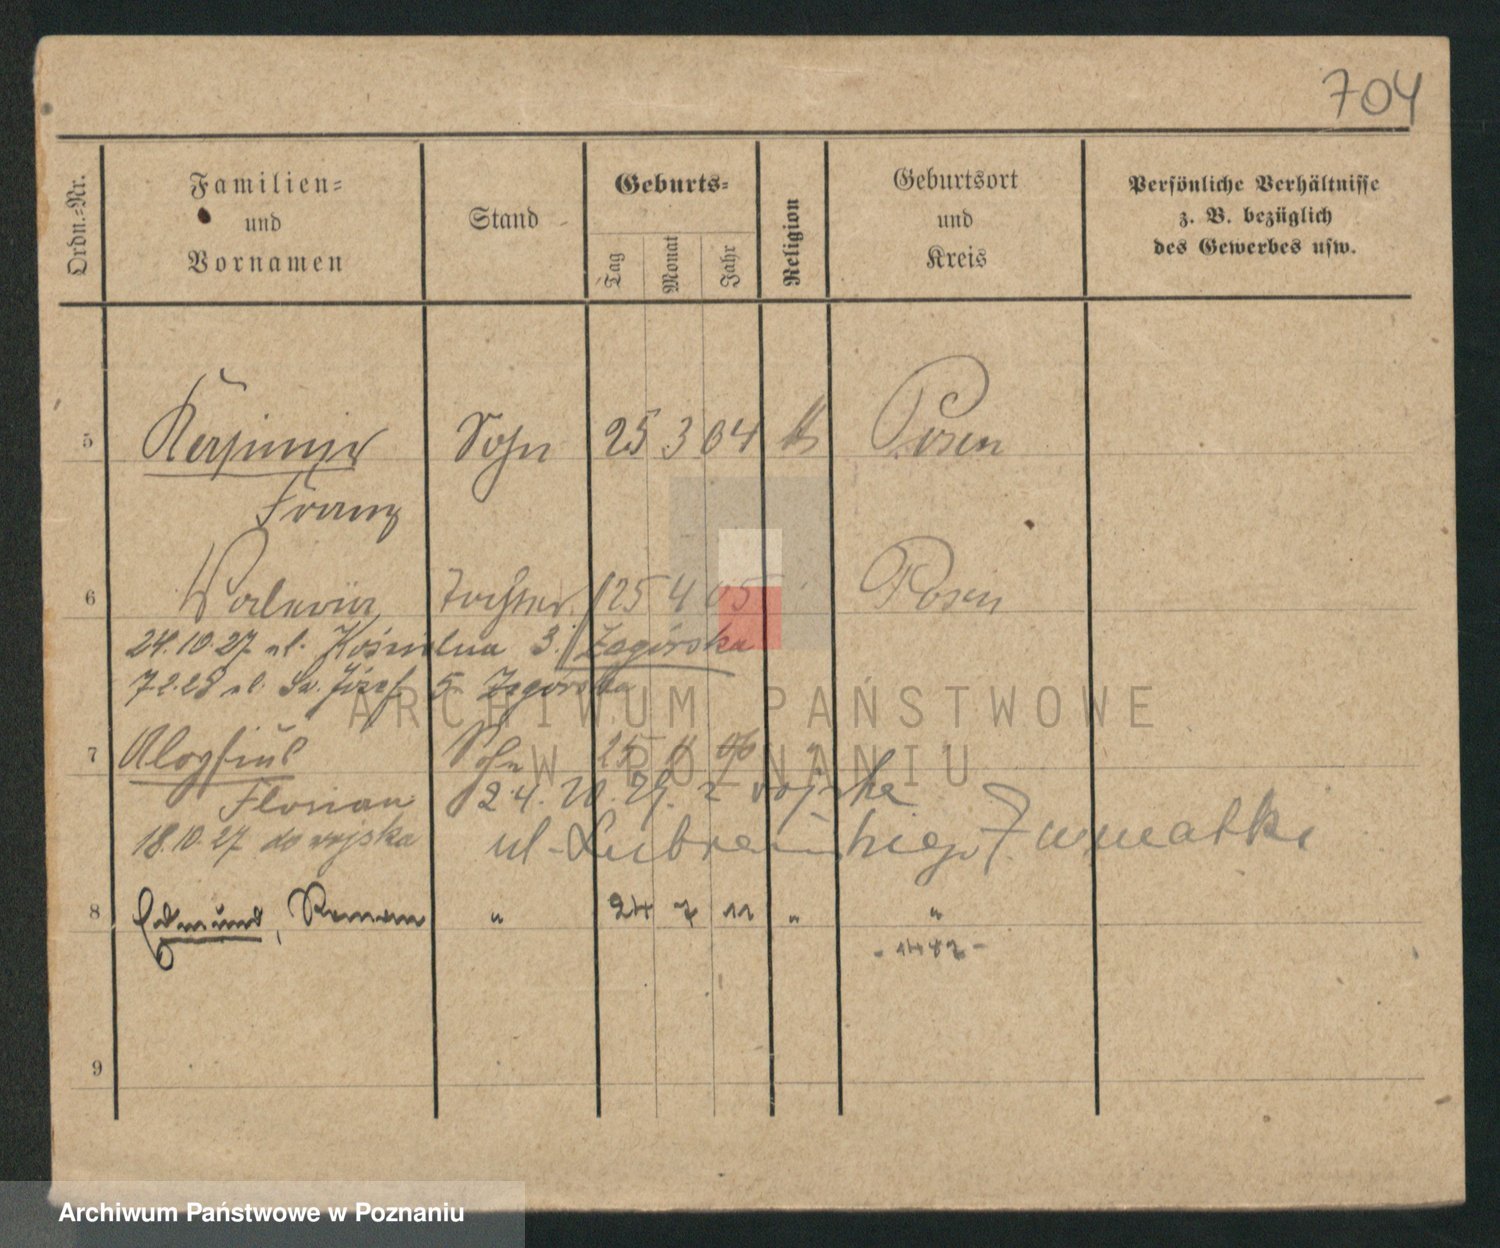 704
Ordn.=Nr.
Familien=
und
Vornamen
Stand
Geburts=
Tag
Monat
Jahr
Religion
Geburtsort
und
Kreis
Persönliche Verhältnisse
z. B. bezüglich
des Gewerbes usw.
5 Kasimir Sohn 25 3 04 k Posen
Franz
6 Valeria Tochter 25 4 05 Posen
24.10.27 ul. 3. Zagórska
7.2.28 ul. Św. Józef 5 Zagórska
7 Aloysius Sohn 25
Florian 24. 10. 29. z wojska
18.10.27 do wojska ul. Lubrańskiego 7 u matki
8 Edmund, Roman " 24 7 11 " "
9
ARCHIWUM PAŃSTWOWE
W POZNANIU
Archiwum Państwowe w Poznaniu